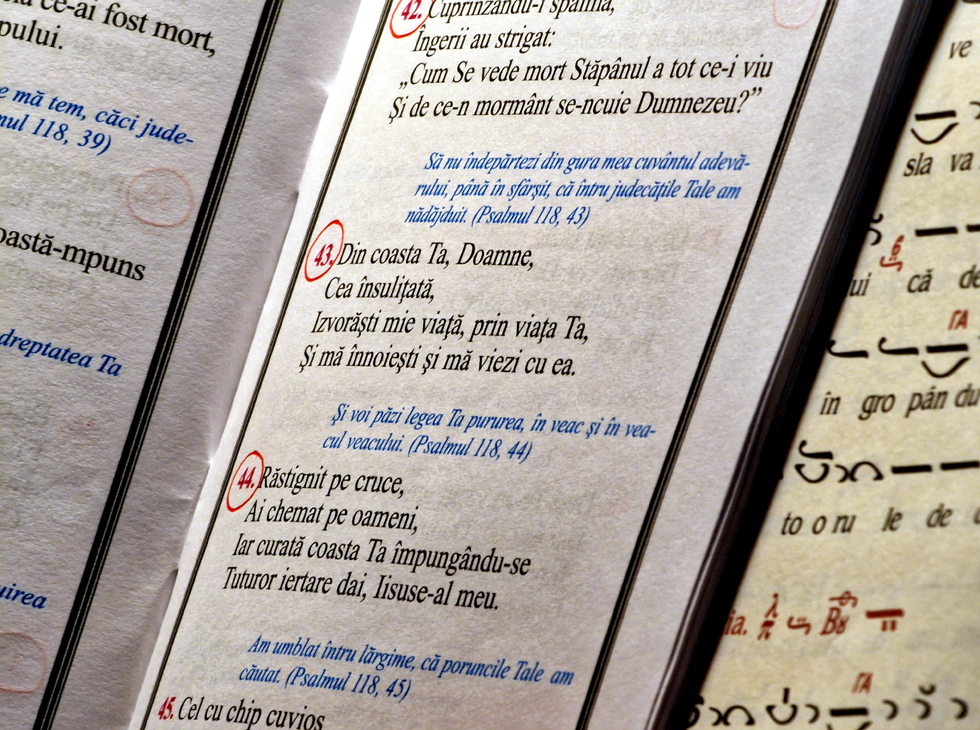 ce-ai fost mort,
pului.
mă tem, căci jude-
118, 39)
coastă-mpuns
dreptatea Ta
42. Cuprinzându-i spaima,
Îngerii au strigat:
„Cum Se vede mort Stăpânul a tot ce-i viu
Şi de ce-n mormânt se-ncuie Dumnezeu?”
Să nu îndepărtezi din gura mea cuvântul adevă-
rului, până în sfârşit, că întru judecăţile Tale am
nădăjduit. (Psalmul 118, 43)
43. Din coasta Ta, Doamne,
Cea însuliţată,
Izvorăşti mie viaţă, prin viaţa Ta,
Şi mă înnoieşti şi mă viezi cu ea.
Şi voi păzi legea Ta pururea, în veac şi în vea-
cul veacului. (Psalmul 118, 44)
44. Răstignit pe cruce,
Ai chemat pe oameni,
Iar curată coasta Ta împungându-se
Tuturor iertare dai, Iisuse-al meu.
Am umblat întru lărgime, că poruncile Tale am
căutat. (Psalmul 118, 45)
45. Cel cu chip cuvios
ve
sla va
ui că de
ΓΑ
în gro pân du
to o ru le de
ia.
ΓΑ